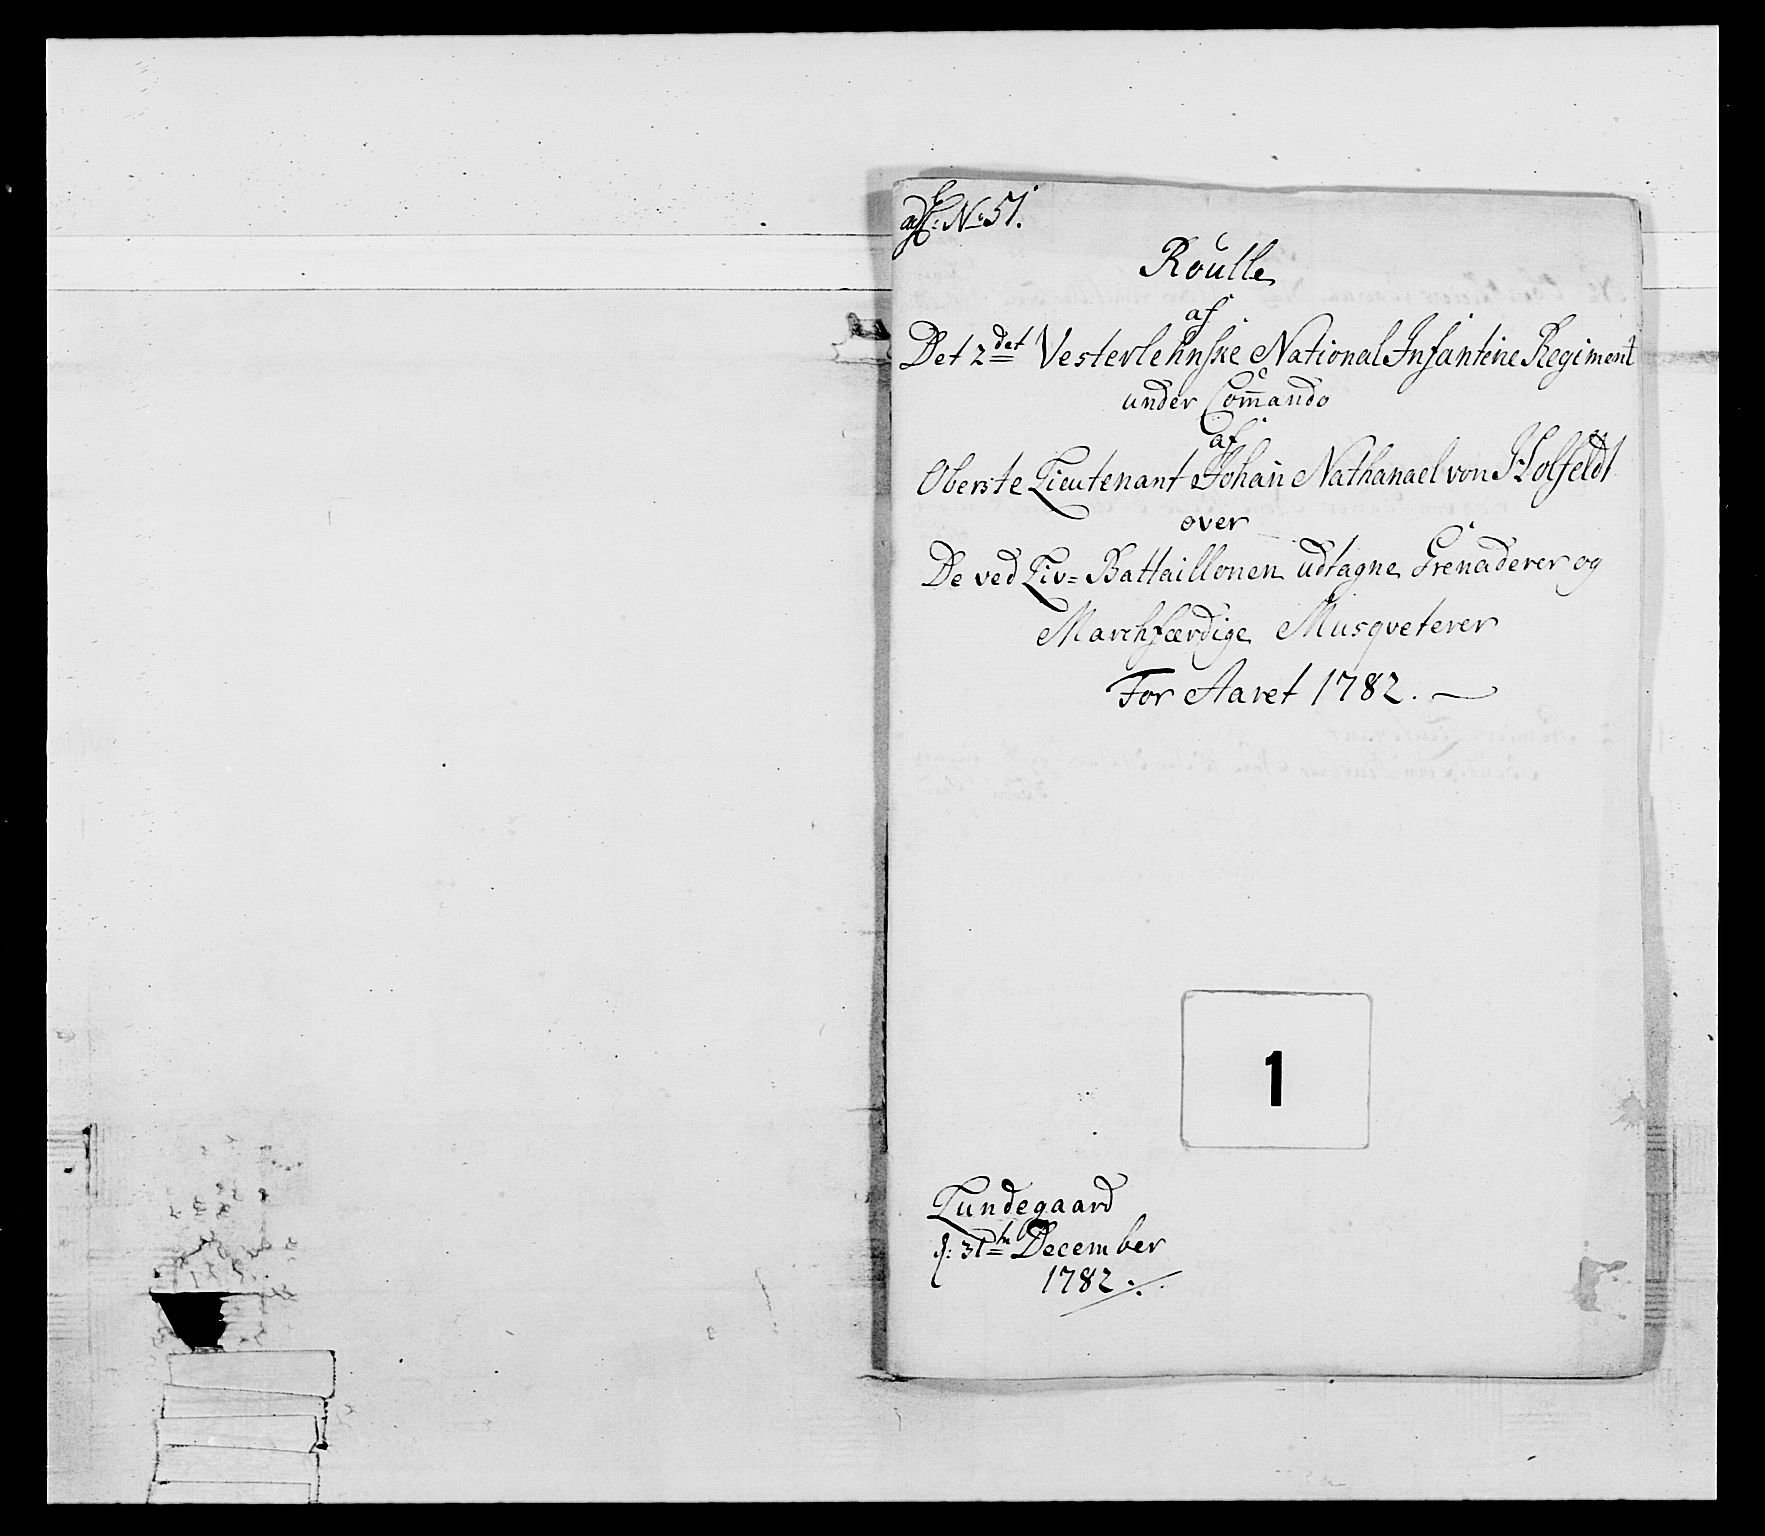 No 51.
Roulle
af
Det 2det Vesterlehnske National Infanterie Regiment
under Com̄ando
af
Oberste Lieutenant Johan Nathanael von Holfeldt
over
De ved Liv= Battaillonen udtagne Grenaderer og
Marchfærdige Musqveterer
For Aaret 1782. —
1
Lundegaard
d: 31th December
1782.